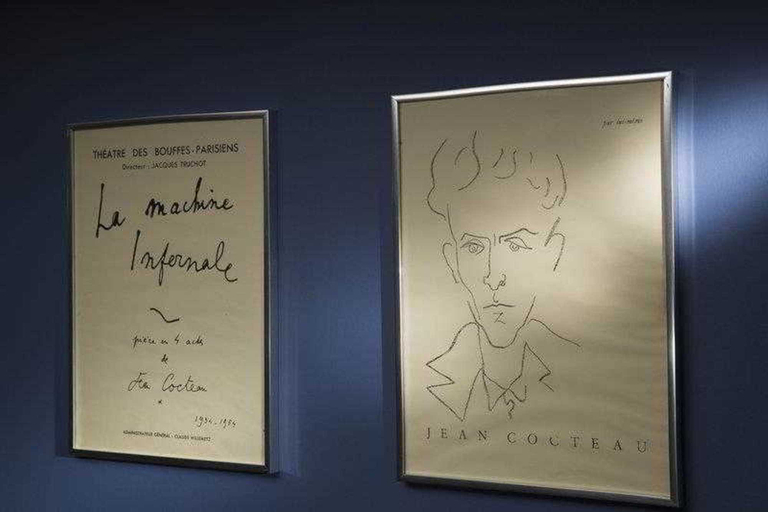 THÉATRE DES BOUFFES-PARISIENS
Directeur : JACQUES TRUCHOT
La machine
Infernale
pièce en 4 actes
de
Jean Cocteau
*
1934-1954
ADMINISTRATEUR GÉNÉRAL : CLAUDE
par lui-même
JEAN COCTEAU